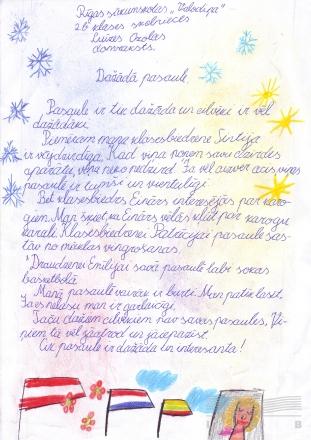 Rīgas sākumskolas „Valodiņa"
2b klases skolnieces
Luīzes Ozolas
domraksts.
Dažādā pasaule.
Pasaule ir tik dažāda un cilvēki ir vēl
dažādāki.
Piemēram mana klasesbiedrene Sintija
ir vājdzirdīga. Kad viņa noņem savu dzirdes
aparātu, viņa neko nedzird. Ja vēl aizver acis viņas
pasaulē ir tumšs un vientulīgi.
Bet klasesbiedrs Einārs interesējās par karo-
giem. Man šķiet, ka Einārs vēlās kļūt par karogu
karali. Klasesbiedrenei Patrīcijai pasaule sas-
tāv no mākslas vingrošanas.
Draudzenei Emīlijai savā pasaulē labi sokas
basketbolā.
Manā pasaulē vairāk ir burti. Man patīk lasīt.
Ja es nelasu man ir garlaicīgi.
Taču dažiem cilvēkiem nav savas pasaules. Vi-
ņiem tā vēl jāatrod un jāiepazīst.
Cik pasaule ir dažāda un interesanta!